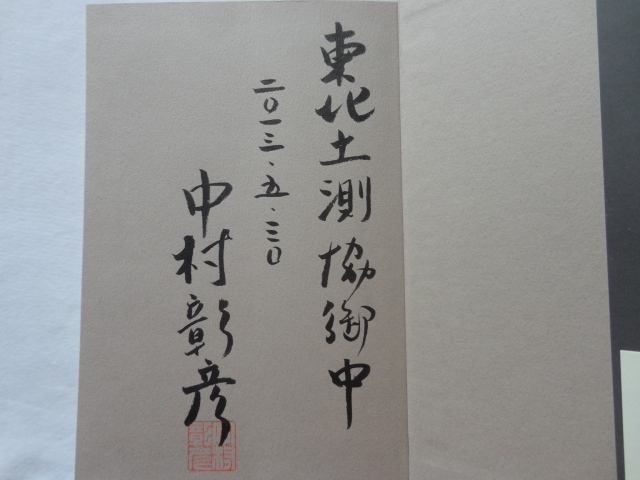 東北土測協御中
二〇一三・五・三〇
中村彰彦